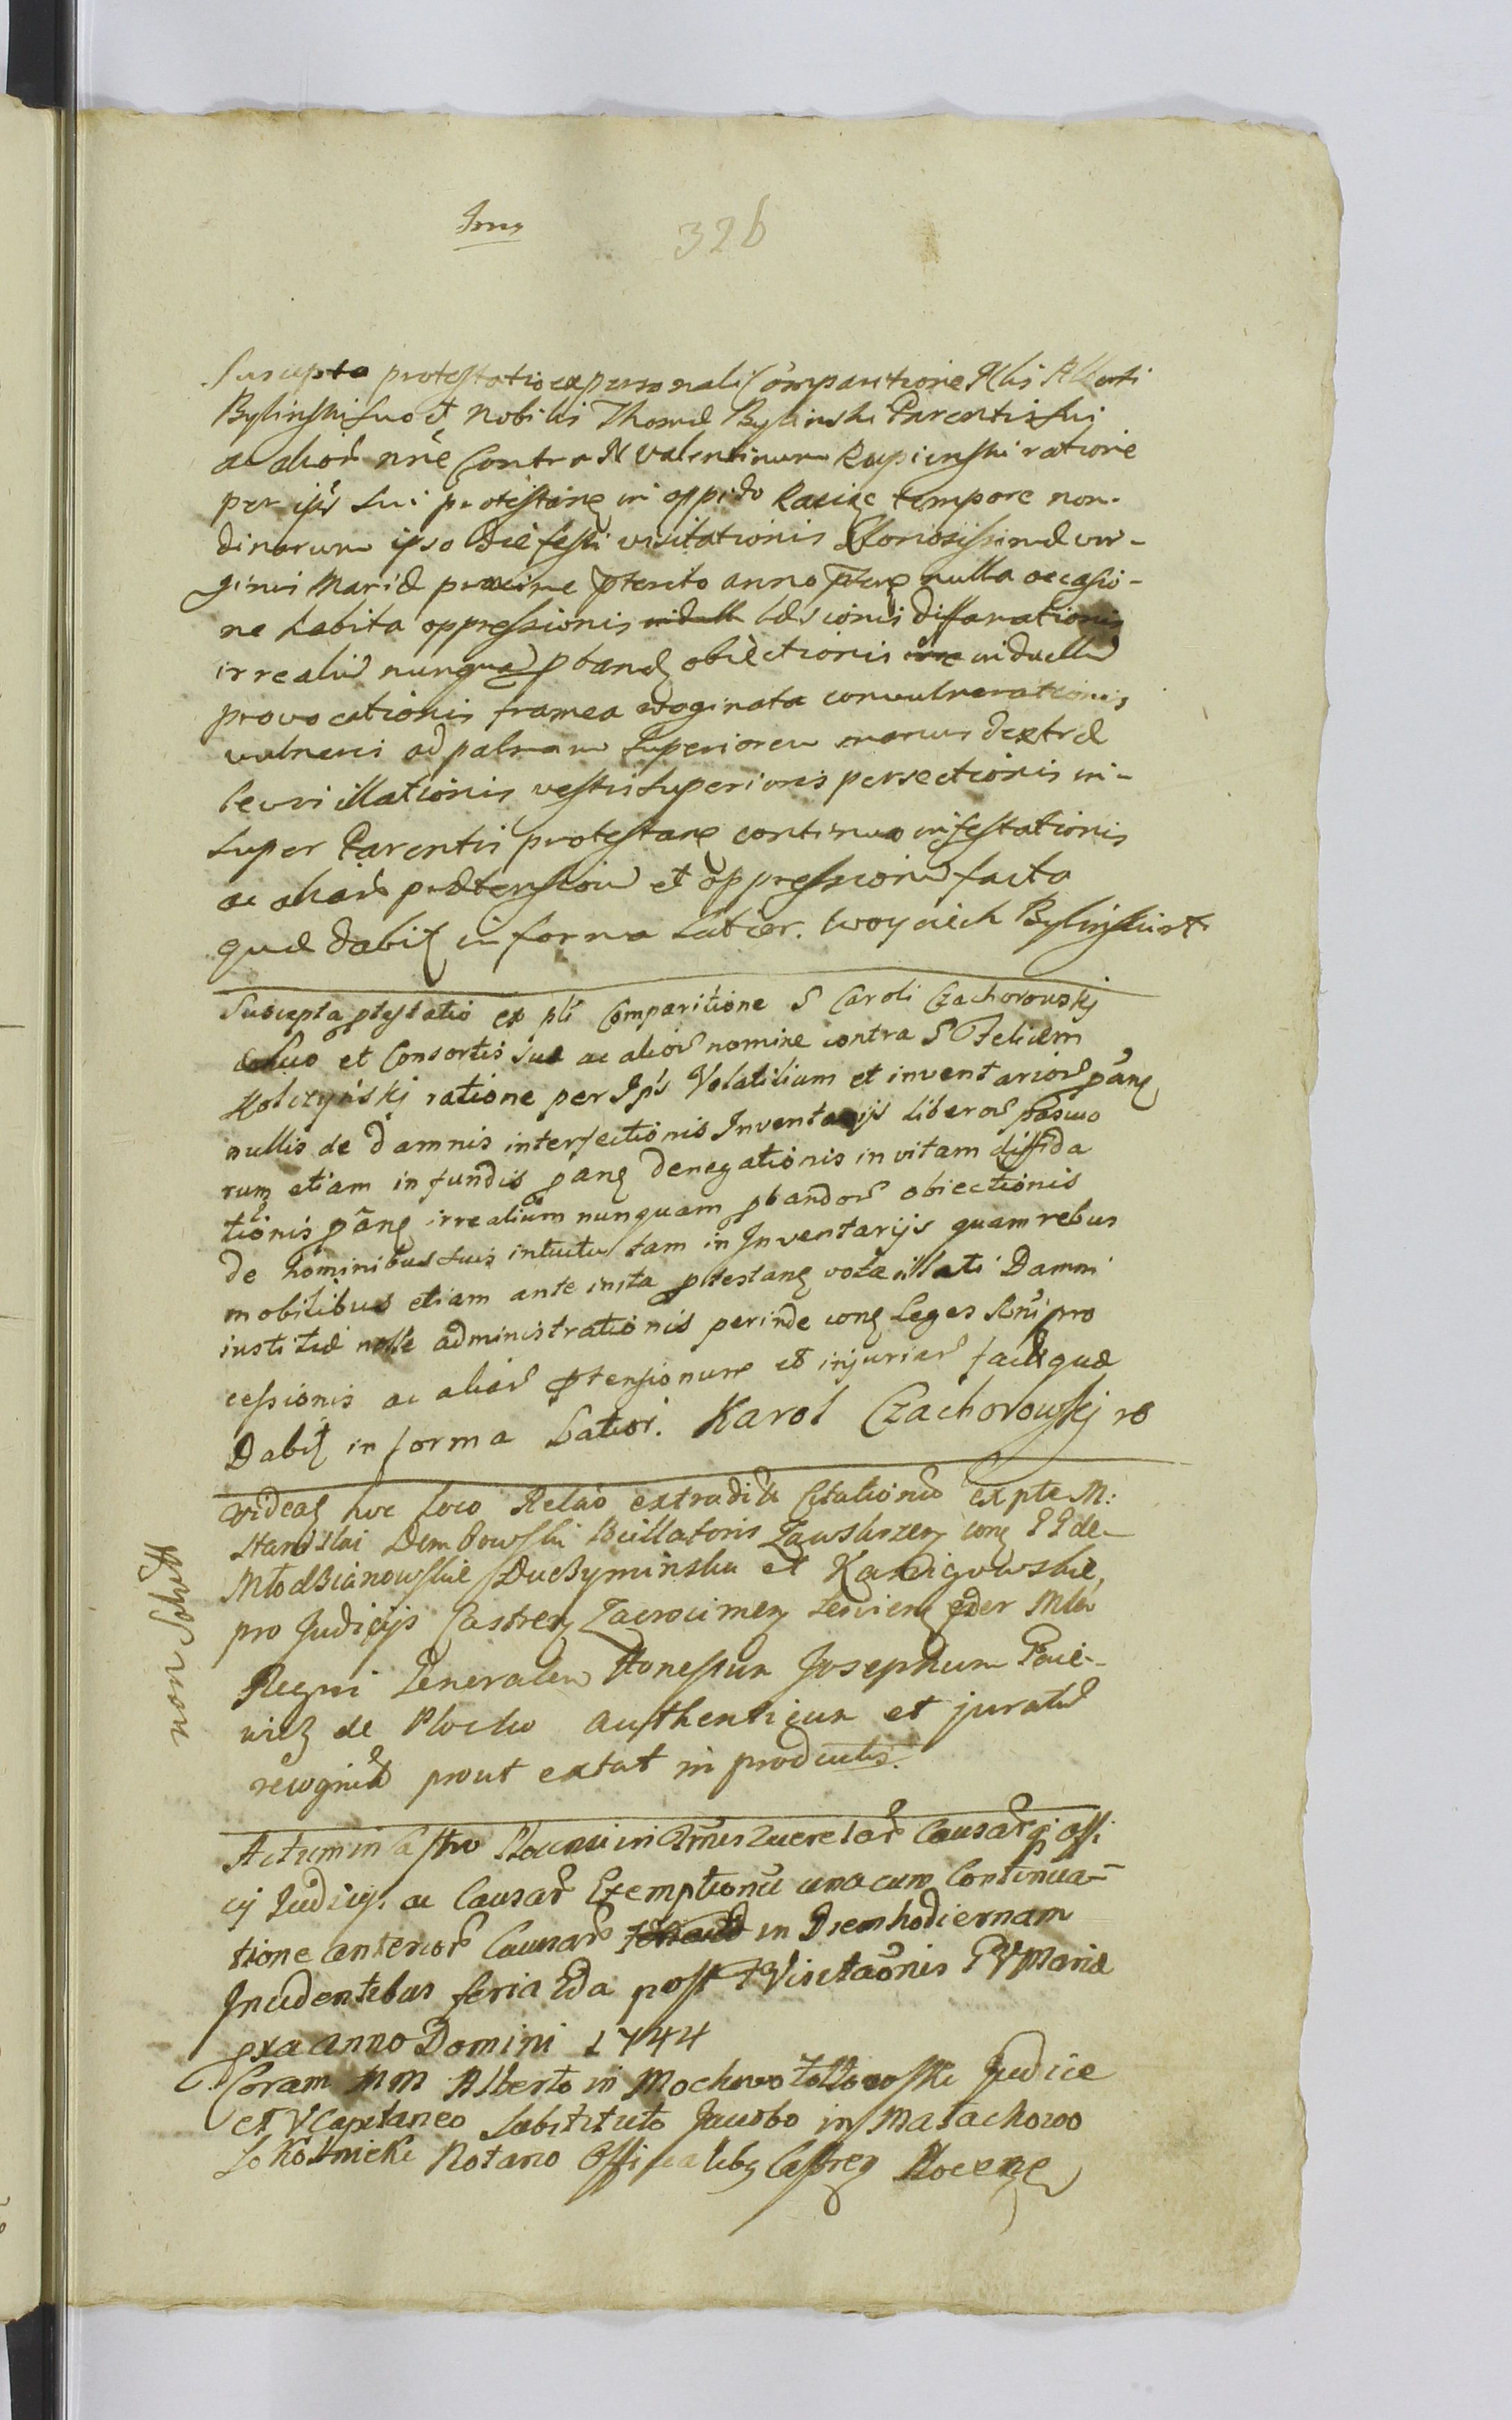 326
Suscepta protestatio ex personali Comparitione Nlis Alberti
Bylinski suo et Nobilis Thomæ Bylinski Parentis sui
ac alior nne Contra N Valentinum Rupienski ratione
per ips sui protestan in oppido Raciąz tempore nun-
dinarum ipso die festi visitationis Gloriosissimæ vir-
ginis Mariæ proxime pterito anno nulla occasio-
ne habita oppressionis læsionis diffamationis
irrealiu nunquā pband obiectionis in duellū
provocationis framea evaginata convulnerationis
vulneris ad palmam superiorem manus dextræ
levis illationis vestis superioris persectionis in-
super Parentis protestan continuo infestationis
ac aliar prætension et oppression facta
quæ dabit in forma latior. Woyciech Bylinski
Suscepta ptestatio ex pli Comparitione S Caroli Czachorowskj
suo et Consortis suæ ac alior nomine contra S Felicem
Kolczynskj ratione per Ips Volatilium et inventarior pan
nullis de damnis interfectionis Inventarijs liberor pascuo
rum etiam in fundis pan denegationis in vitam diffida
tionis pan irrealium nunquam pbandor obiectionis
de hominibus suis intuitu tam in Inventarijs quam rebus
mobilibus etiam ante insta ptestan illati Damni
iustitiæ nolle administrationis perinde con Leges Rni pro
cessionis ac aliar ptensionum et injuriar facta quæ
Dabit in forma Latior. Karol Czachorowskj
Videat hoc loco Relao extradit Citationū ex pte M:
Stanislai Dembowski Burllatoris Zawskrzen con PP de
Młodzianowskie Duczyminska et
pro Judicijs Castren Zacrocimen
Regni Generalem Honestum Josephum
de Plocko authenticum et juratū
recognit prout extat in productis.
non solvit
Actum in Castro Plocensi in Trmis Querelar Causar offi
cij Judicij. ac Causar Exemptionū una cum Continua-
tione anterior Causar in Diem hodiernam
Incidentibus feria 2da post F Visitaonis BV Mariæ
pxa anno Domini 1744
Coram MM Alberto in Mochowo Zołtowski Judice
et VCapitaneo Substituto Jacobo in Małachowo
Sokolnicki Notario Officialibus Castren Plocen